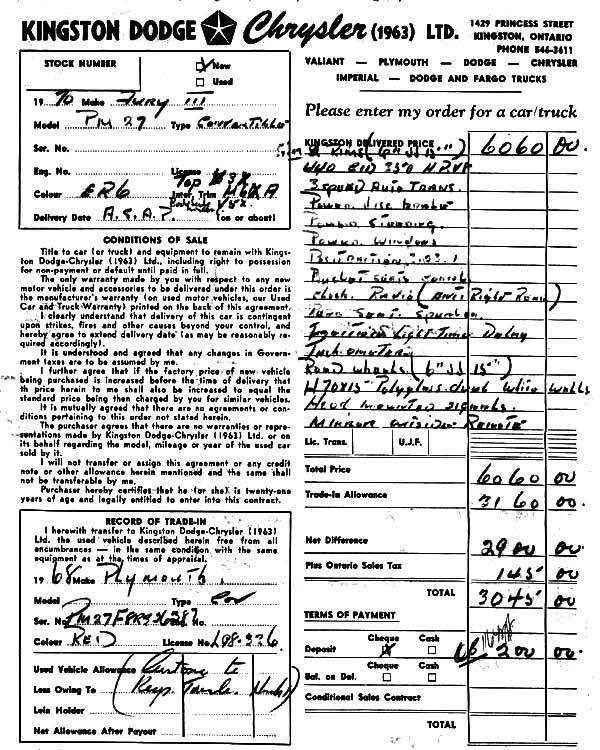 KINGSTON DODGE Chrysler (1963) LTD.
1429 PRINCESS STREET
KINGSTON, ONTARIO
PHONE 546-3611
VALIANT — PLYMOUTH — DODGE — CHRYSLER
IMPERIAL — DODGE AND FARGO TRUCKS
STOCK NUMBER
New
Used
19 70 Make Fury III
Model PM 27 Type Convertible
Ser. No.
Eng. No. License
Colour ER6 Top V3X Inter. Trim H6XA
Delivery Date A.S.A.P. (on or about)
CONDITIONS OF SALE
Title to car (or truck) and equipment to remain with Kings-
ton Dodge-Chrysler (1963) Ltd., including right to possession
for non-payment or default until paid in full.
The only warranty made by you with respect to any new
motor vehicle and accessories to be delivered under this order is
the manufacturer's warranty (on used motor vehicles, our Used
Car and Truck Warranty) printed on the back of this agreement.
I clearly understand that delivery of this car is contingent
upon strikes, fires and other causes beyond your control, and
hereby agree to extend delivery date (as may be reasonably re-
quired accordingly).
It is understood and agreed that any changes in Govern-
ment taxes are to be assumed by me.
I further agree that if the factory price of new vehicle
being purchased is increased before the time of delivery that
the price herein to me shall also be increased to equal the
standard price being then charged by you for similar vehicles.
It is mutually agreed that there are no agreements or con-
ditions pertaining to this order not stated herein.
The purchaser agrees that there are no warranties or repre-
sentations made by Kingston Dodge-Chrysler (1963) Ltd. or on
its behalf regarding the model, mileage or year of the used car
sold by it.
I will not transfer or assign this agreement or any credit
note or other allowance herein mentioned and the same shall
not be transferable by me.
Purchaser hereby certifies that he (or she) is twenty-one
years of age and legally entitled to enter into this contract.
RECORD OF TRADE-IN
I herewith transfer to Kingston Dodge-Chrysler (1963)
Ltd. the used vehicle described herein free from all
encumbrances — in the same condition with the same
equipment as at the times of appraisal.
19 68 Make Plymouth
Model Type Con
Ser. No. PM27F8R336287 No.
Colour RED License No. L98-326
Used Vehicle Allowance Customer to
Less Owing To (Keep
Lein Holder
Net Allowance After Payout
Please enter my order for a car/truck
KINGSTON DELIVERED PRICE 6060 00
440 CID 350 H.P. V8
3 Speed Auto Trans.
Power disc brakes
Power Steering.
Power Windows
Bucket Seats Console
Radio
Rear Seat Speaker
Ignition Light Time Delay
Tachometer
Road Wheels (6" JJ 15")
H70X15 Polyglass dual white walls
Hood mounted signals.
Mirror outside Remote
Lic. Trans. U.J.F.
Total Price 6060 00
Trade-In Allowance 3160 00
Net Difference 2900 00
Plus Ontario Sales Tax 145 00
TOTAL 3045 00
TERMS OF PAYMENT
Cheque Cash
Deposit 200 00
Cheque Cash
Bal. on Del.
Conditional Sales Contract
TOTAL